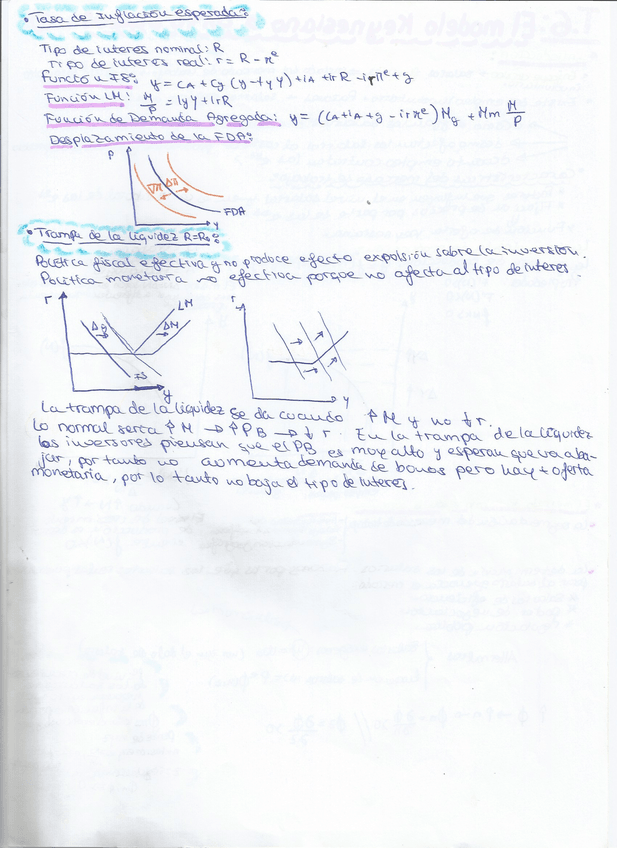 • Tasa de Inflación esperada:
Tipo de interes nominal: R
Tipo de interes real: r = R - πᵉ
Función IS: y = CA + Cy (y - ty Y) + iA + irR - irπᵉ + g
Función LM: M/P = lyY + lrR
Función de Demanda Agregada: y = (CA + iA + g - irπᵉ) Mg + Mm M/P
Desplazamiento de la FDA:
P
∇π Δπ
FDA
y
• Trampa de la liquidez R=R₀:
Política fiscal efectiva y no produce efecto expulsión sobre la inversión.
Política monetaria no efectiva porque no afecta al tipo de interes.
r
Δg
LM
ΔM
IS
y
r
y
La trampa de la liquidez se da cuando ↑M y no ↓r.
Lo normal sería ↑M → ↑PB → ↓r. En la trampa de la liquidez
los inversores piensan que el PB es muy alto y esperan que va aba-
jar, por tanto no aumenta demanda de bonos pero hay + oferta
monetaria, por lo tanto no baja el tipo de interes.